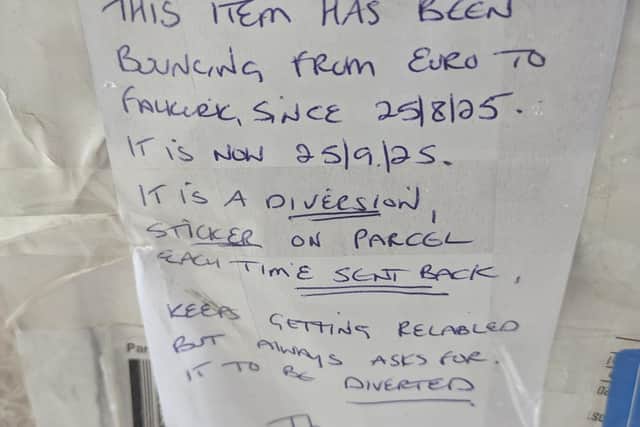 THIS ITEM HAS BEEN
BOUNCING FROM EURO TO
FALKIRK, SINCE 25/8/25.
IT IS NOW 25/9/25.
IT IS A DIVERSION,
STICKER ON PARCEL
EACH TIME SENT BACK,
KEEPS GETTING RELABLED
BUT ALWAYS ASKS FOR.
IT TO BE DIVERTED
Par